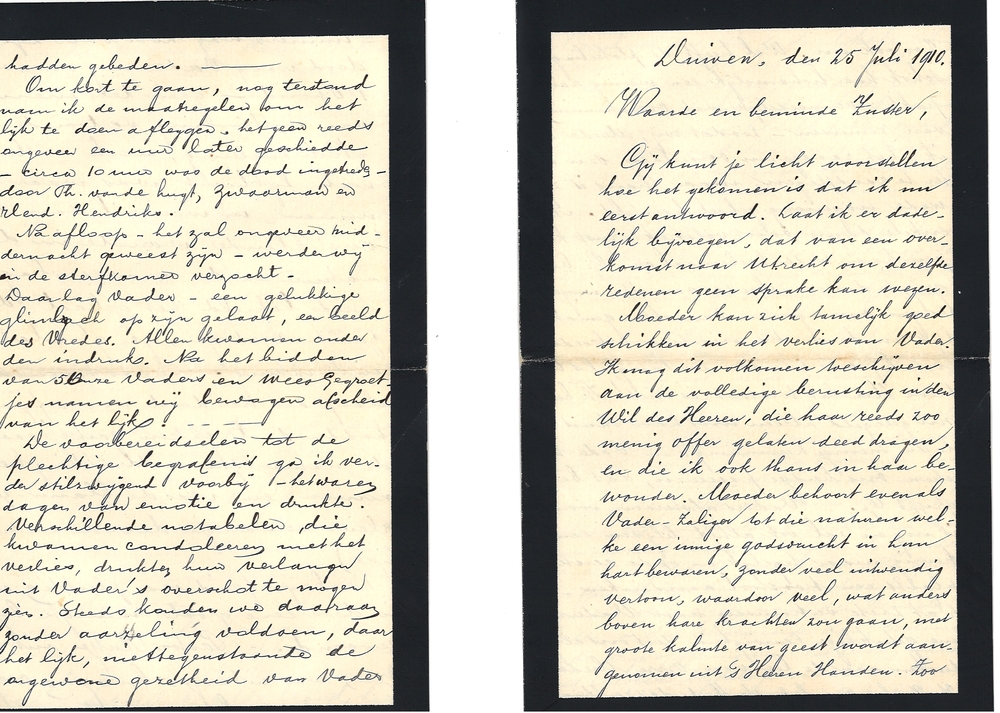 hadden gebeden. ———
Om kort te gaan, nog terstond
nam ik de maatregelen om het
lijk te doen afleggen. hetgeen reeds
ongeveer een uur later geschiedde
- circa 10 uur was de dood ingetreden -
door Th. van de hugt, Zwaarman en
Hend. Hendriks.
Na afloop - het zal ongeveer mid-
dernacht geweest zijn - werden wij
in de sterfkamer verzocht -
Daar lag Vader - een gelukkige
glimlach op zijn gelaat, een beeld
des Vredes. Allen kwamen onder
den indruk. Na het bidden
van 5 Onze Vaders en Wees Gegroet-
jes namen wij bewogen afscheid
van het lijk. - - ———
De voorbereidselen tot de
plechtige begrafenis ga ik ver-
der stilzwijgend voorbij - het waren
dagen van emotie en drukte.
Verschillende notabelen, die
kwamen condoleeren met het
verlies, drukten hun verlangen
uit Vader's overschot te mogen
zien. Steeds konden we daaraan
zonder aarzeling voldoen, daar
het lijk, niettegenstaande de
ongewone gezetheid van Vader
Duiven, den 25 Juli 1910.
Waarde en beminde Zuster,
Gij kunt je licht voorstellen
hoe het gekomen is dat ik nu
eerst antwoord. Laat ik er dade-
lijk bijvoegen, dat van een over-
komst naar Utrecht om dezelfde
redenen geen sprake kan wezen.
Moeder kan zich tamelijk goed
schikken in het verlies van Vader.
Ik mag dit volkomen toeschrijven
aan de volledige berusting in den
Wil des Heeren, die haar reeds zoo
menig offer gelaten deed dragen,
en die ik ook thans in haar be-
wonder. Moeder behoort evenals
Vader - Zaliger tot die naturen wel-
ke een innige godsvrucht in hun
hart bewaren, zonder veel uitwendig
vertoon, waardoor veel, wat anders
boven hare krachten zou gaan, met
groote kalmte van geest wordt aan-
genomen uit 's Heeren Handen. Zoo